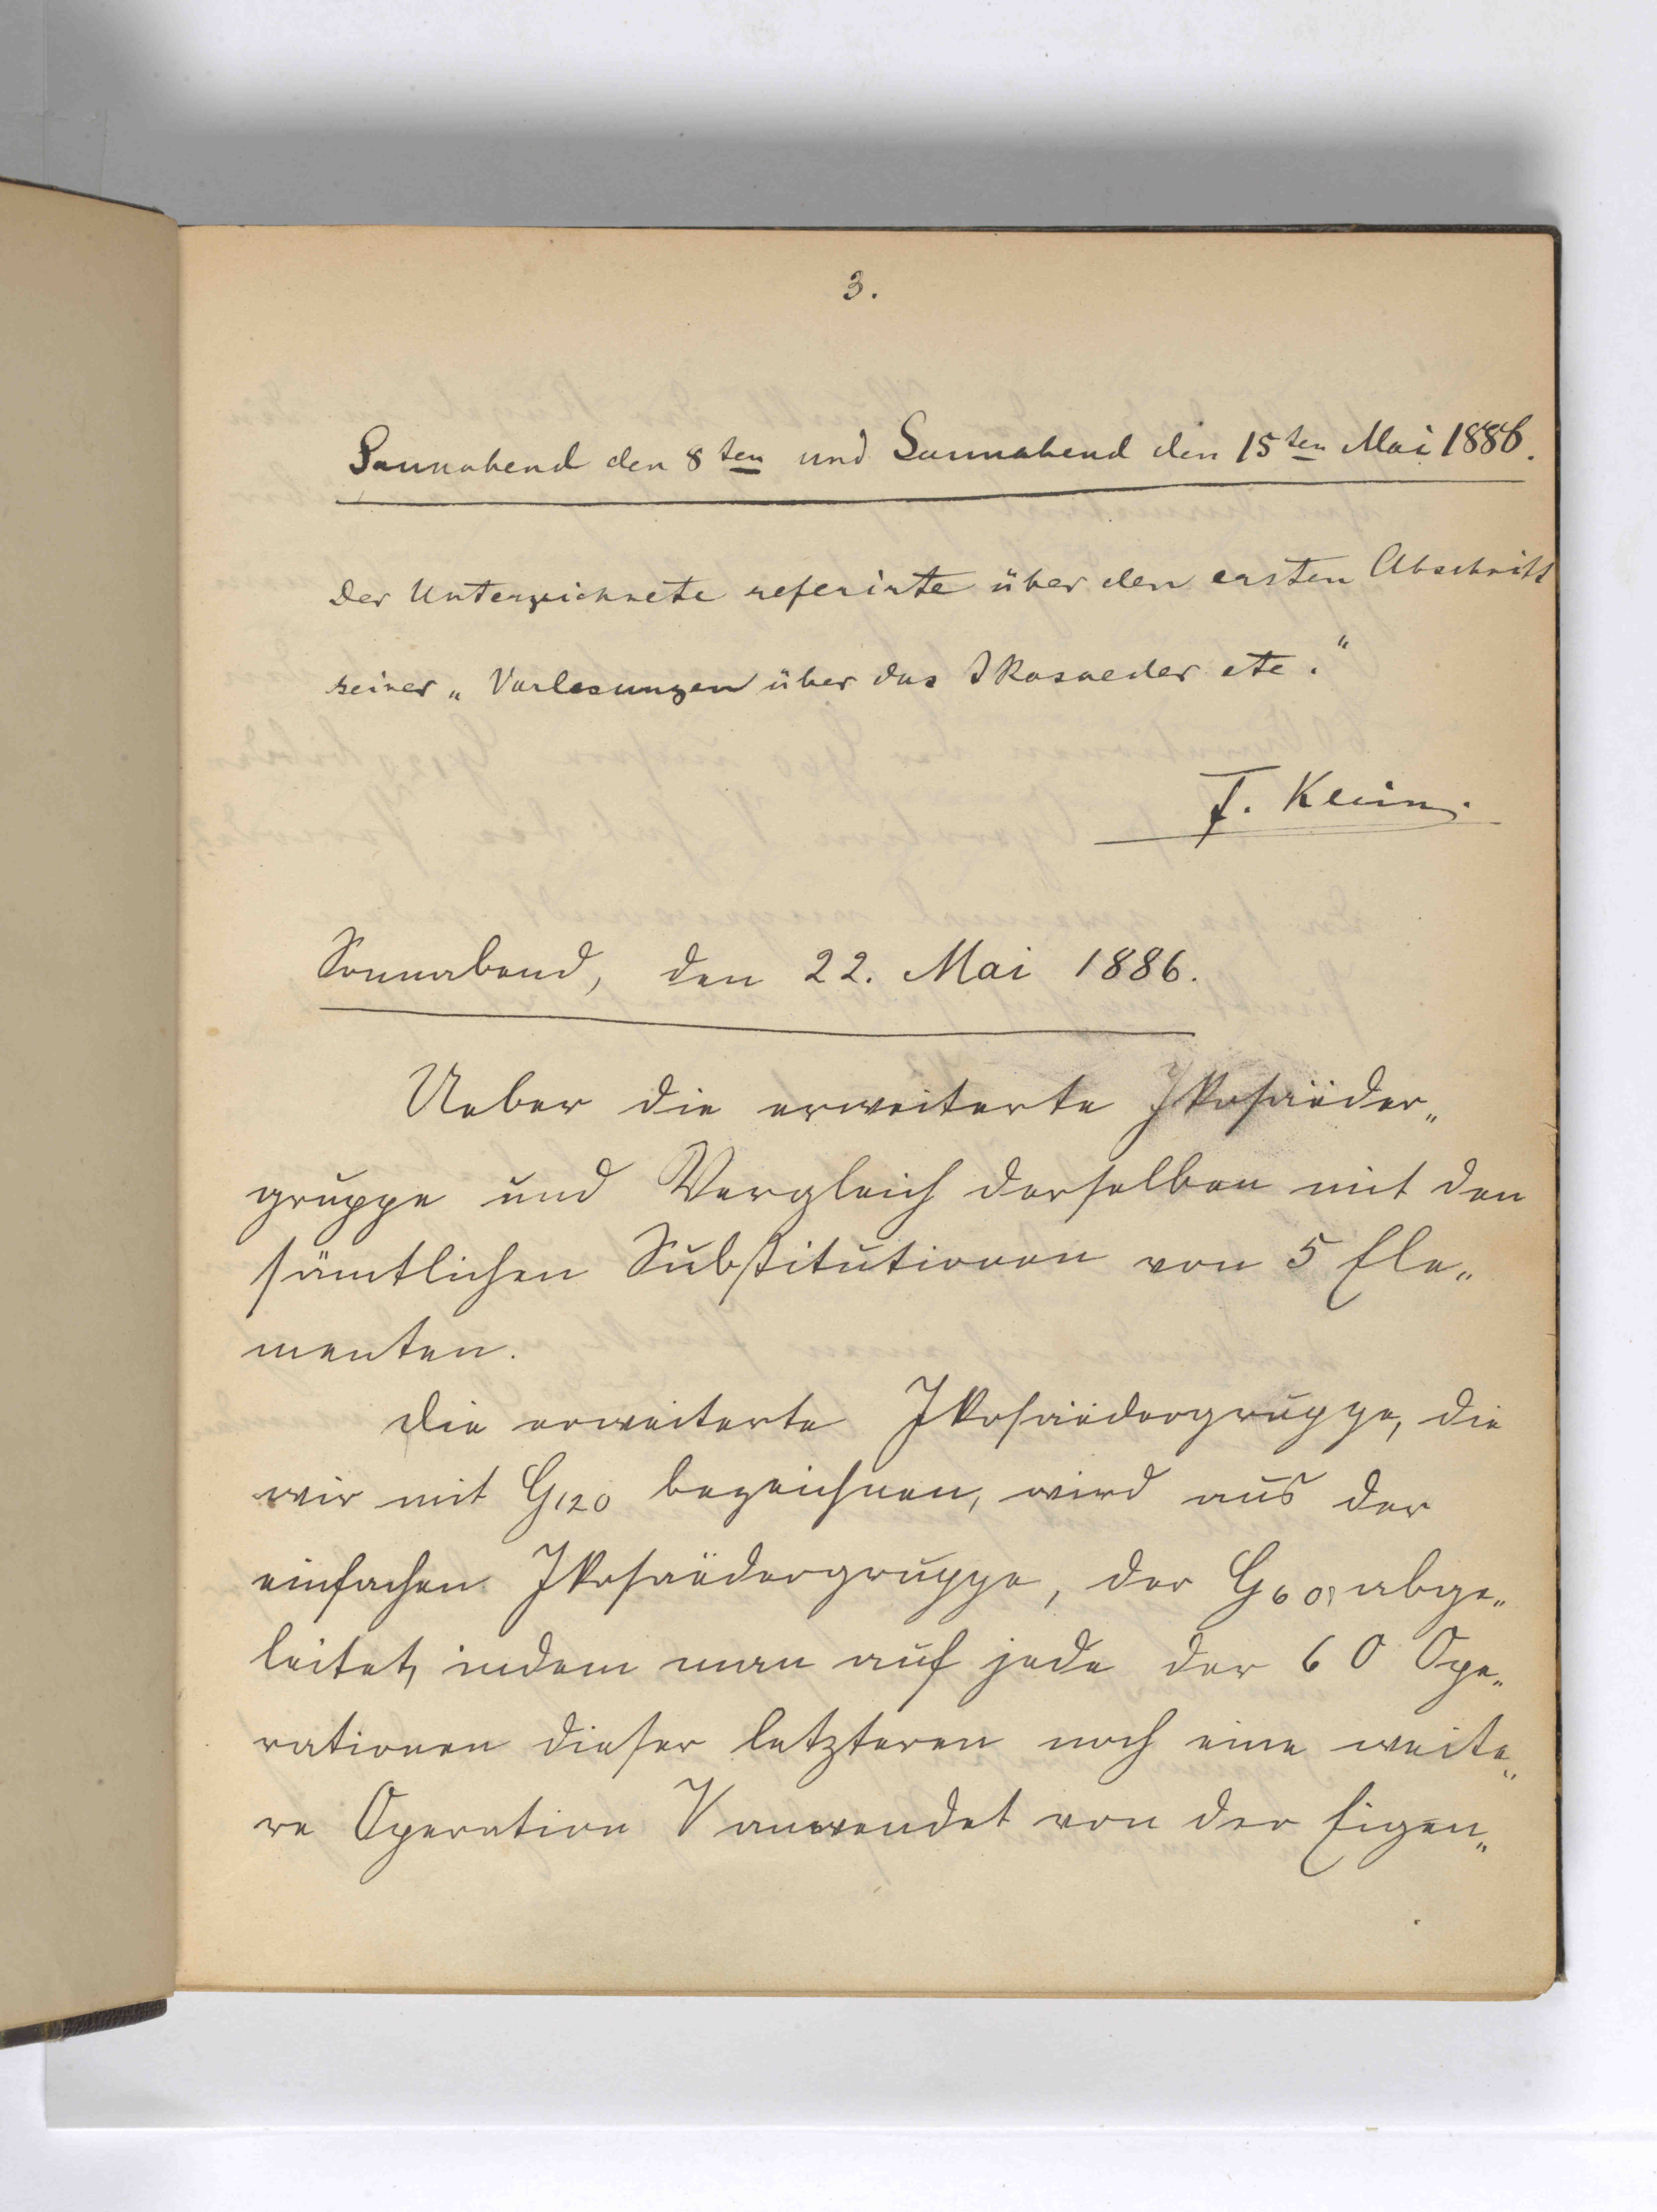 3.
Sonnabend den 8ten und Sonnabend den 15ten Mai 1886.
Der Unterzeichnete referirte über den ersten Abschnitt
seiner „Vorlesungen über das Ikosaeder etc.“
F. Klein.
Sonnabend, den 22. Mai 1886.
Ueber die erweiterte Ikosaëder„
gruppe und Vergleich derselben mit den
sämtlichen Substitutionen von 5 Ele„
menten.
Die erweiterte Ikosaëdergruppe, die
wir mit G120 bezeichnen, wird aus der
einfachen Ikosaëdergruppe, der G60, abge„
leitet, indem man auf jede der 60 Ope„
rationen dieser letzteren noch eine weite„
re Operation V anwendet von der Eigen„